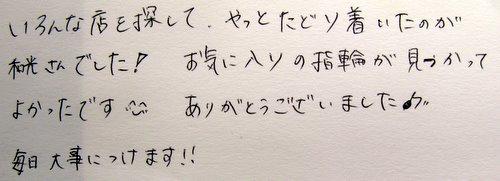 いろんな店を探して、やっとたどり着いたのが
和光さんでした! お気に入りの指輪が見つかって
よかったです ありがとうございました
毎日大事につけます!!